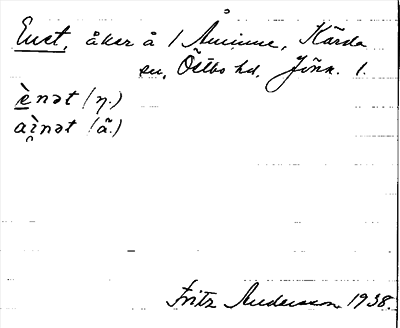 Enet, åker å 1 Åminne, Kärda
sn, Östbo hd, Jönk. l.
ènət (y.)
aìnət (ä.)
Fritz Andersson 1938.